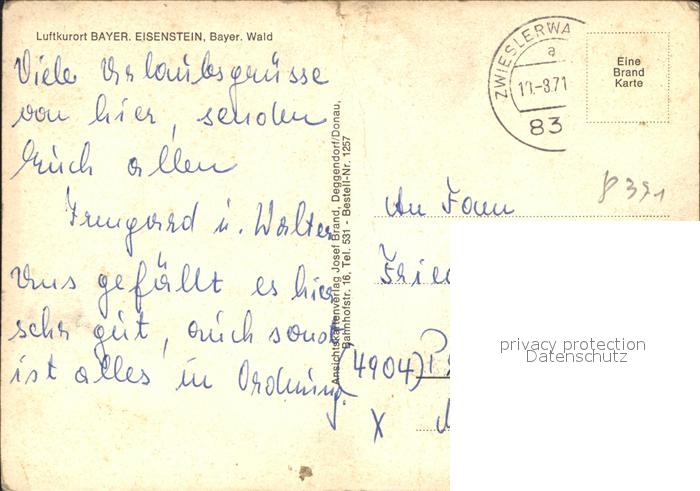 Luftkurort BAYER. EISENSTEIN, Bayer. Wald
Viele Urlaubsgrüsse
von hier, senden
Euch allen
Irmgard u. Walter
Uns gefällt es hier
sehr gut, auch sonst
ist alles in Ordnung.
Ansichtskartenverlag Josef Brand, Deggendorf/Donau,
Bahnhofstr. 16, Tel. 531 - Bestell-Nr. 1257
ZWIESLERWA
a
-8.71
83
Eine
Brand
Karte
An Fam
Frie
(4904)
X
privacy protection
Datenschutz